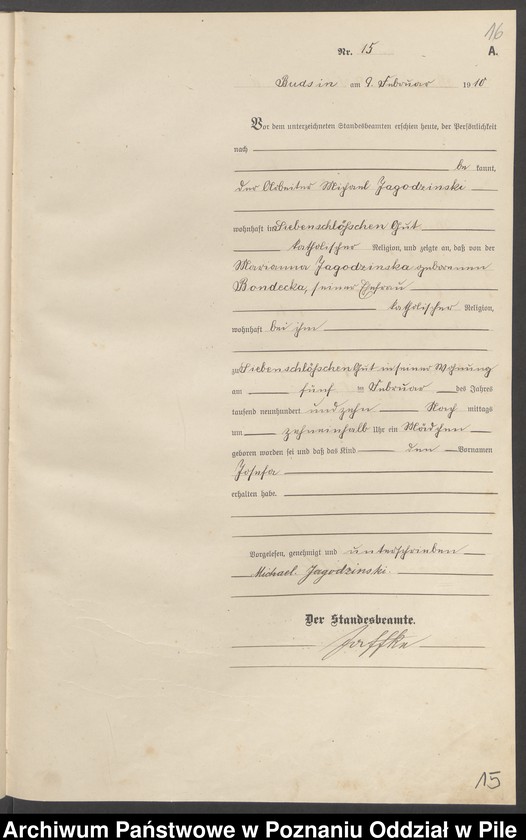 16
Nr. 15
A.
Budsin am 9. Februar 1910
Vor dem unterzeichneten Standesbeamten erschien heute, der Persönlichkeit
nach
be kannt,
der Arbeiter Michael Jagodzinski
wohnhaft in Liebenschlößchen Gut
katholischer Religion, und zeigte an, daß von der
Marianna Jagodzinska geborenen
Bondecka, seiner Ehefrau
katholischer Religion,
wohnhaft bei ihm
zu Liebenschlößchen Gut in seiner Wohnung
am fünf ten Februar des Jahres
tausend neunhundert und zehn Nach mittags
um zehneinhalb Uhr ein Mädchen
geboren worden sei und daß das Kind den Vornamen
Josefa
erhalten habe.
Vorgelesen, genehmigt und unterschrieben
Michael Jagodzinski
Der Standesbeamte.
Jaffke
15
Archiwum Państwowe w Poznaniu Oddział w Pile